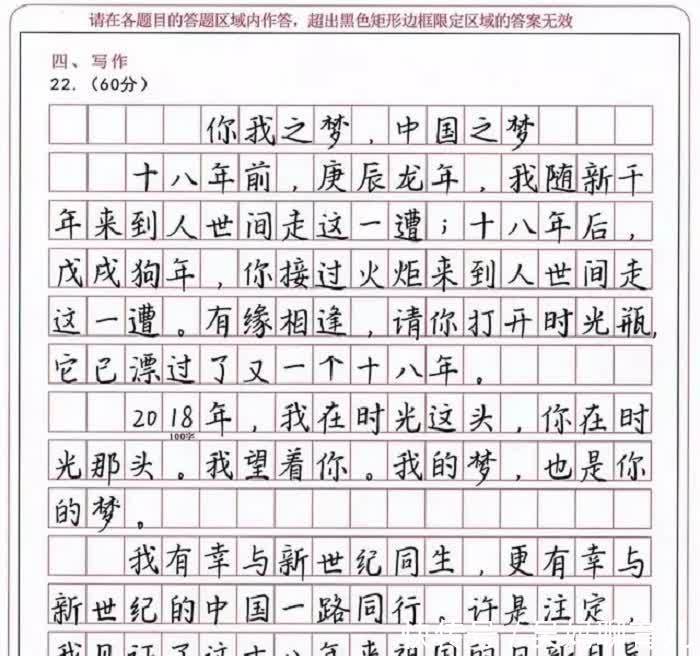 请在各题目的答题区域内作答，超出黑色矩形边框限定区域的答案无效
四、写作
22.（60分）
你我之梦，中国之梦
十八年前，庚辰龙年，我随新千
年来到人世间走这一遭；十八年后，
戊戌狗年，你接过火炬来到人世间走
这一遭。有缘相逢，请你打开时光瓶，
它已漂过了又一个十八年。
2018年，我在时光这头，你在时
100字
光那头。我望着你。我的梦，也是你
的梦。
我有幸与新世纪同生，更有幸与
新世纪的中国一路同行。许是注定，
我见证了这十八年来祖国的日新月异